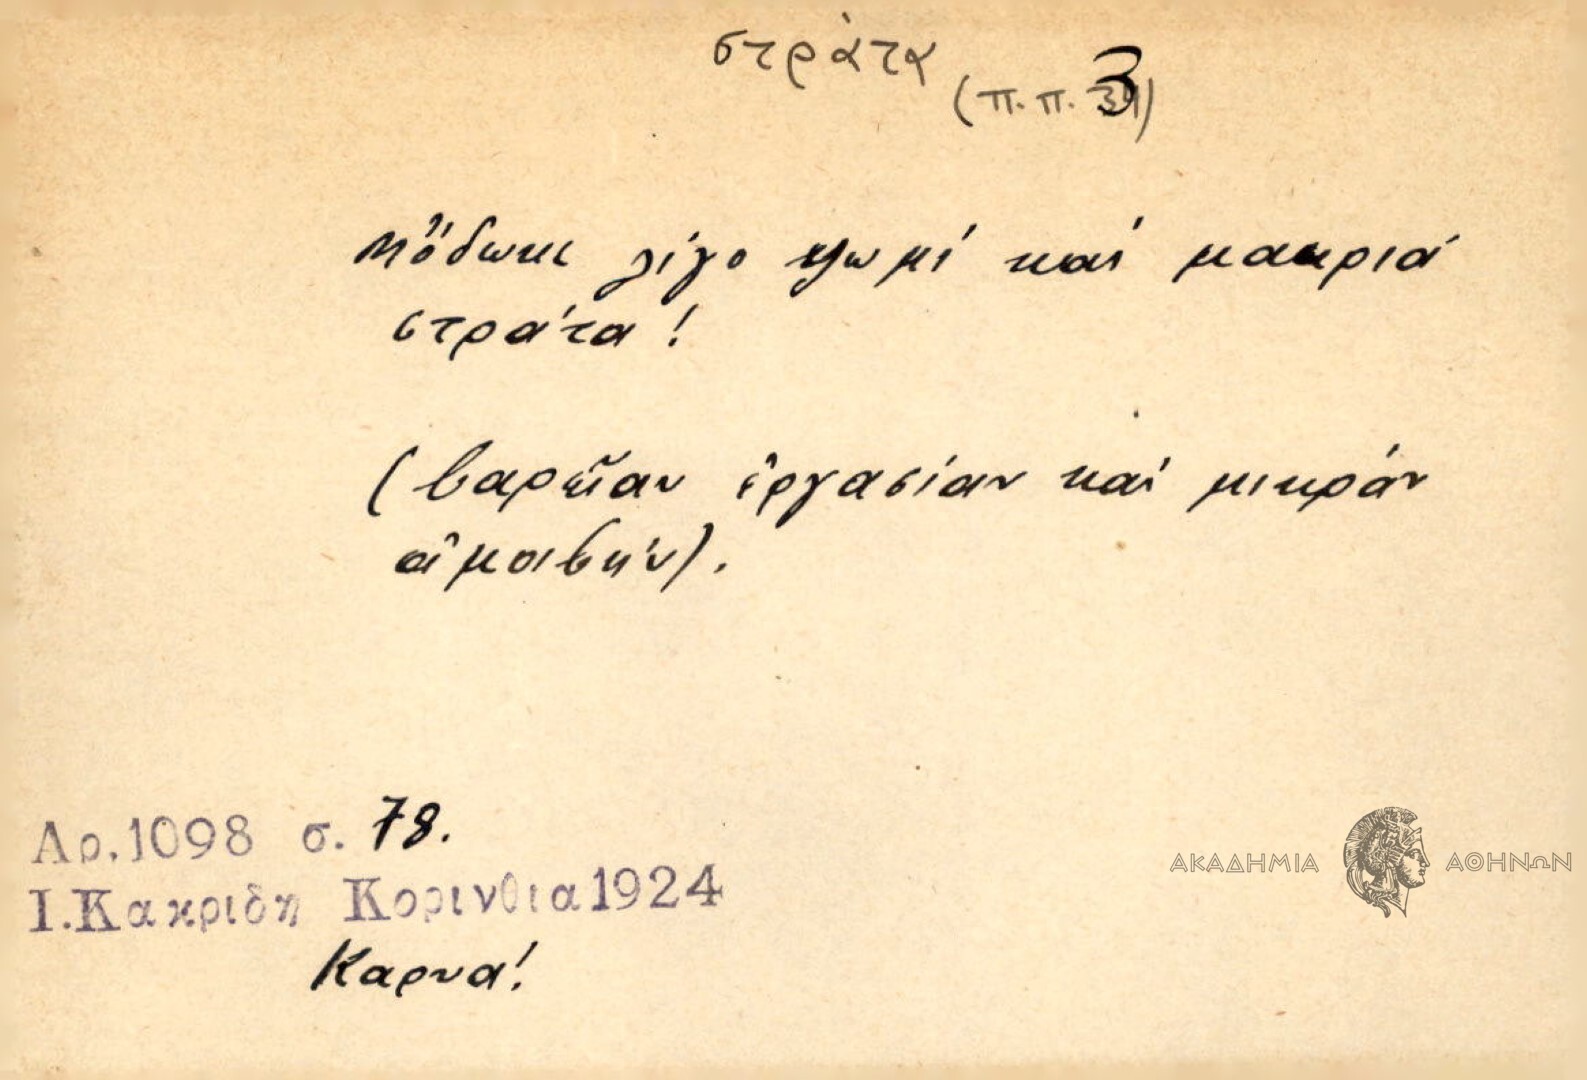 στράτα
(π.π. 3)
Μὄδωκε λίγο ψωμί καί μακριά
στράτα!
(βαρεῖαν ἐργασίαν καί μικράν
ἀμοιβήν).
Αρ.1098 σ. 78.
Ι.Κακριδη Κορινθια 1924
Καρυά!
ΑΚΑΔΗΜΙΑ ΑΘΗΝΩΝ